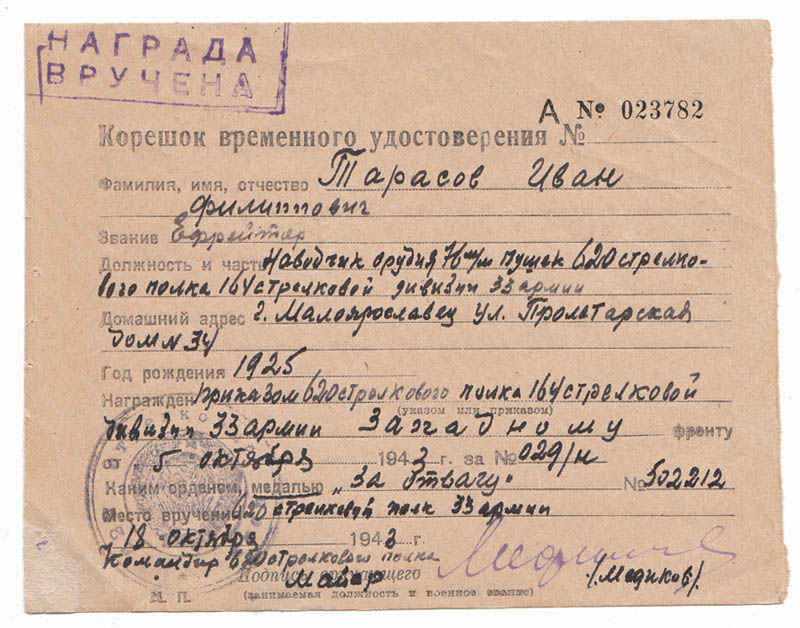 НАГРАДА
ВРУЧЕНА
А № 023782
Корешок временного удостоверения №
Фамилия, имя, отчество Тарасов Иван
Филиппович
Звание Ефрейтор
Должность и часть Наводчик орудия 76 м/м пушек 620 стрелко-
вого полка 164 стрелковой дивизии 33 армии
Домашний адрес г. Малоярославец ул. Прольтарская
дом № 34
Год рождения 1925
Награжден приказом 620 стрелкового полка 164 стрелковой
(указом или приказом)
дивизии 33 армии Западному фронту
5 октября 1943 г. за № 029/н
Каким орденом, медалью „За Отвагу" № 502212
Место вручения 620 стрелковый полк 33 армии
18 октября 1943 г.
Командир 620 стрелкового полка
Подпись вручающего
Майор /Медиков/.
М. П. (занимаемая должность и военное звание)